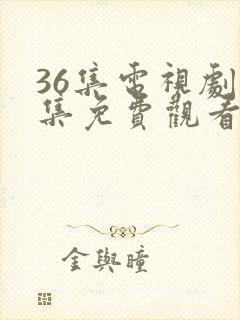 36集電視劇
集免費觀看
金與瞳